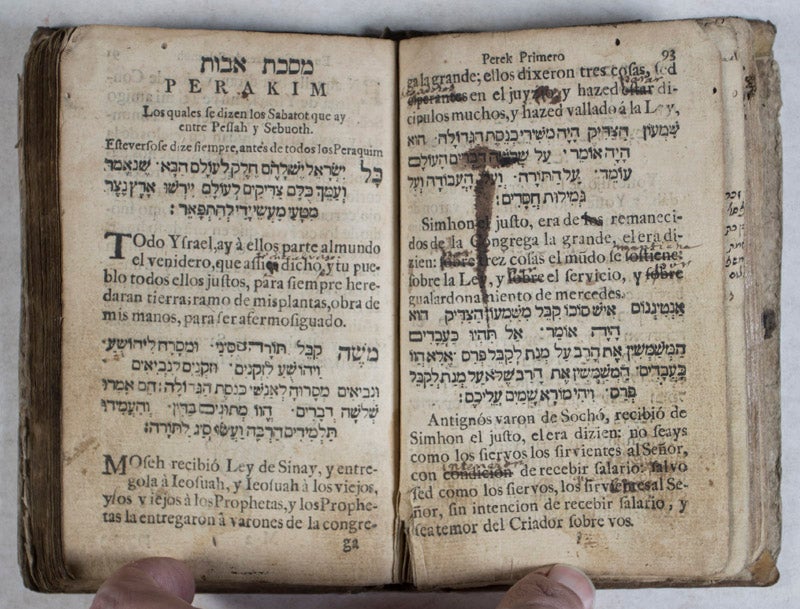 מסכת אבות
PERAKIM
Los quales se dizen los Sabatot que ay
entre Pessah y Sebuoth.
Este verso se dize siempre, antes de todos los Peraquim
כל ישראל יש להם חלק לעולם הבא שנאמר
ועמך כלם צדיקים לעולם יירשו ארץ נצר
מטעי מעשי ידי להתפאר:
TOdo Ysrael, ay à ellos parte al mundo
el venidero, que assi dicho, y tu pue-
blo todos ellos justos, para siempre here-
daran tierra; ramo de mis plantas, obra de
mis manos, para ser afermosiguado.
משה קבל תורה מסיני ומסרה ליהושע
ויהושע לזקנים וזקנים לנביאים
ונביאים מסרוה לאנשי כנסת הגדולה: הם אמרו
שלשה דברים הוו מתונים בדין והעמידו
תלמידים הרבה ועשו סיג לתורה:
MOseh recibió Ley de Sinay, y entre-
gola à Ieosuah, y Ieosuah à los viejos,
y los viejos à los Prophetas, y los Prophe-
tas la entregaron à varones de la congre-
ga
Perek Primero 93
ga la grande; ellos dixeron tres cosas, sed
en el juyzio, y hazed estar di-
cipulos muchos, y hazed vallado á la Ley,
שמעון הצדיק היה משירי כנסת הגדולה הוא
היה אומר על שלשה דברים העולם
עומד על התורה ועל העבודה ועל
גמילות חסדים:
Simhon el justo, era de los remaneci-
dos de la Congrega la grande, el era di-
zien: sobre trez cosas el mũdo se sostiene:
sobre la Ley, y sobre el servicio, y sobre
gualardonamiento de mercedes.
אנטיגנוס איש סוכו קבל משמעון הצדיק הוא
היה אומר אל תהיו כעבדים
המשמשין את הרב על מנת לקבל פרס אלא הוו
כעבדים המשמשין את הרב שלא על מנת לקבל
פרס ויהי מורא שמים עליכם:
Antignós varon de Sochó, recibió de
Simhon el justo, el era dizien: no seays
como los siervos los sirvientes al Señor,
con condicion de recebir salario: salvo
sed como los siervos, los sirvientes al Se-
ñor, sin intencion de recebir salario, y
sea temor del Criador sobre vos.